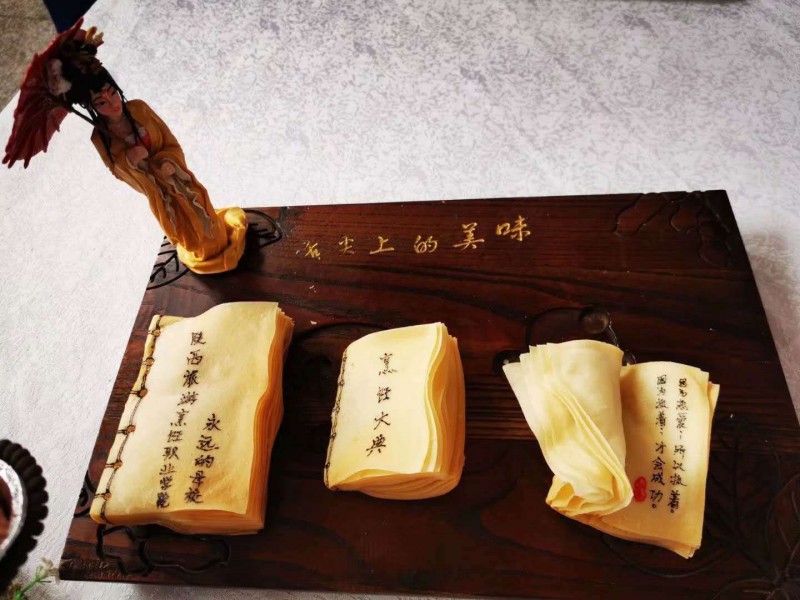 舌尖上的美味
陕西旅游烹饪职业学院
永远的母校
烹饪大典
因为热爱，所以执着。
因为执着，才会成功。